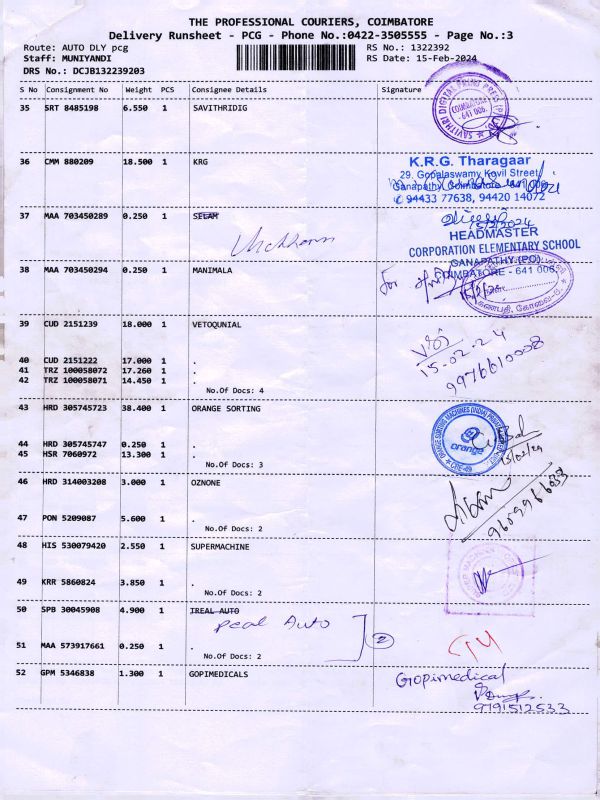 THE PROFESSIONAL COURIERS, COIMBATORE
Delivery Runsheet - PCG - Phone No.:0422-3505555 - Page No.:3
Route: AUTO DLY pcg RS No.: 1322392
Staff: MUNIYANDI RS Date: 15-Feb-2024
DRS No.: DCJB132239203
S No Consignment No Weight PCS Consignee Details Signature
35 SRT 8485198 6.550 1 SAVITHRIDIG
SAVITHRI DIGITAL PRINT PRESS
COIMBATORE
- 641 006.
36 CMM 880209 18.500 1 KRG
K.R.G. Tharagaar
29, Gopalaswamy Kovil Street,
Ganapathy, Coimbatore
94433 77638, 94420 14072
37 MAA 703450289 0.250 1 SELAM
15/2/2024
HEADMASTER
CORPORATION ELEMENTARY SCHOOL
GANAPATHY (PO)
COIMBATORE - 641 006
38 MAA 703450294 0.250 1 MANIMALA
for
கணபதி, கோவை-6.
39 CUD 2151239 18.000 1 VETOQUNIAL
15-02-24
9976610008
40 CUD 2151222 17.000 1 .
41 TRZ 100058072 17.260 1 .
42 TRZ 100058071 14.450 1 .
No.Of Docs: 4
43 HRD 305745723 38.400 1 ORANGE SORTING
orange
CBE-49
15/02/24
44 HRD 305745747 0.250 1 .
45 HSR 7060972 13.300 1 .
No.Of Docs: 3
46 HRD 314003208 3.000 1 OZNONE
9659966033
47 PON 5209087 5.600 1 .
No.Of Docs: 2
48 HIS 530079420 2.550 1 SUPERMACHINE
49 KRR 5860824 3.850 1 .
No.Of Docs: 2
50 SPB 30045908 4.900 1 IREAL AUTO
Real Auto
2
51 MAA 573917661 0.250 1 .
No.Of Docs: 2
52 GPM 5346838 1.300 1 GOPIMEDICALS
Gopimedical
9791512533